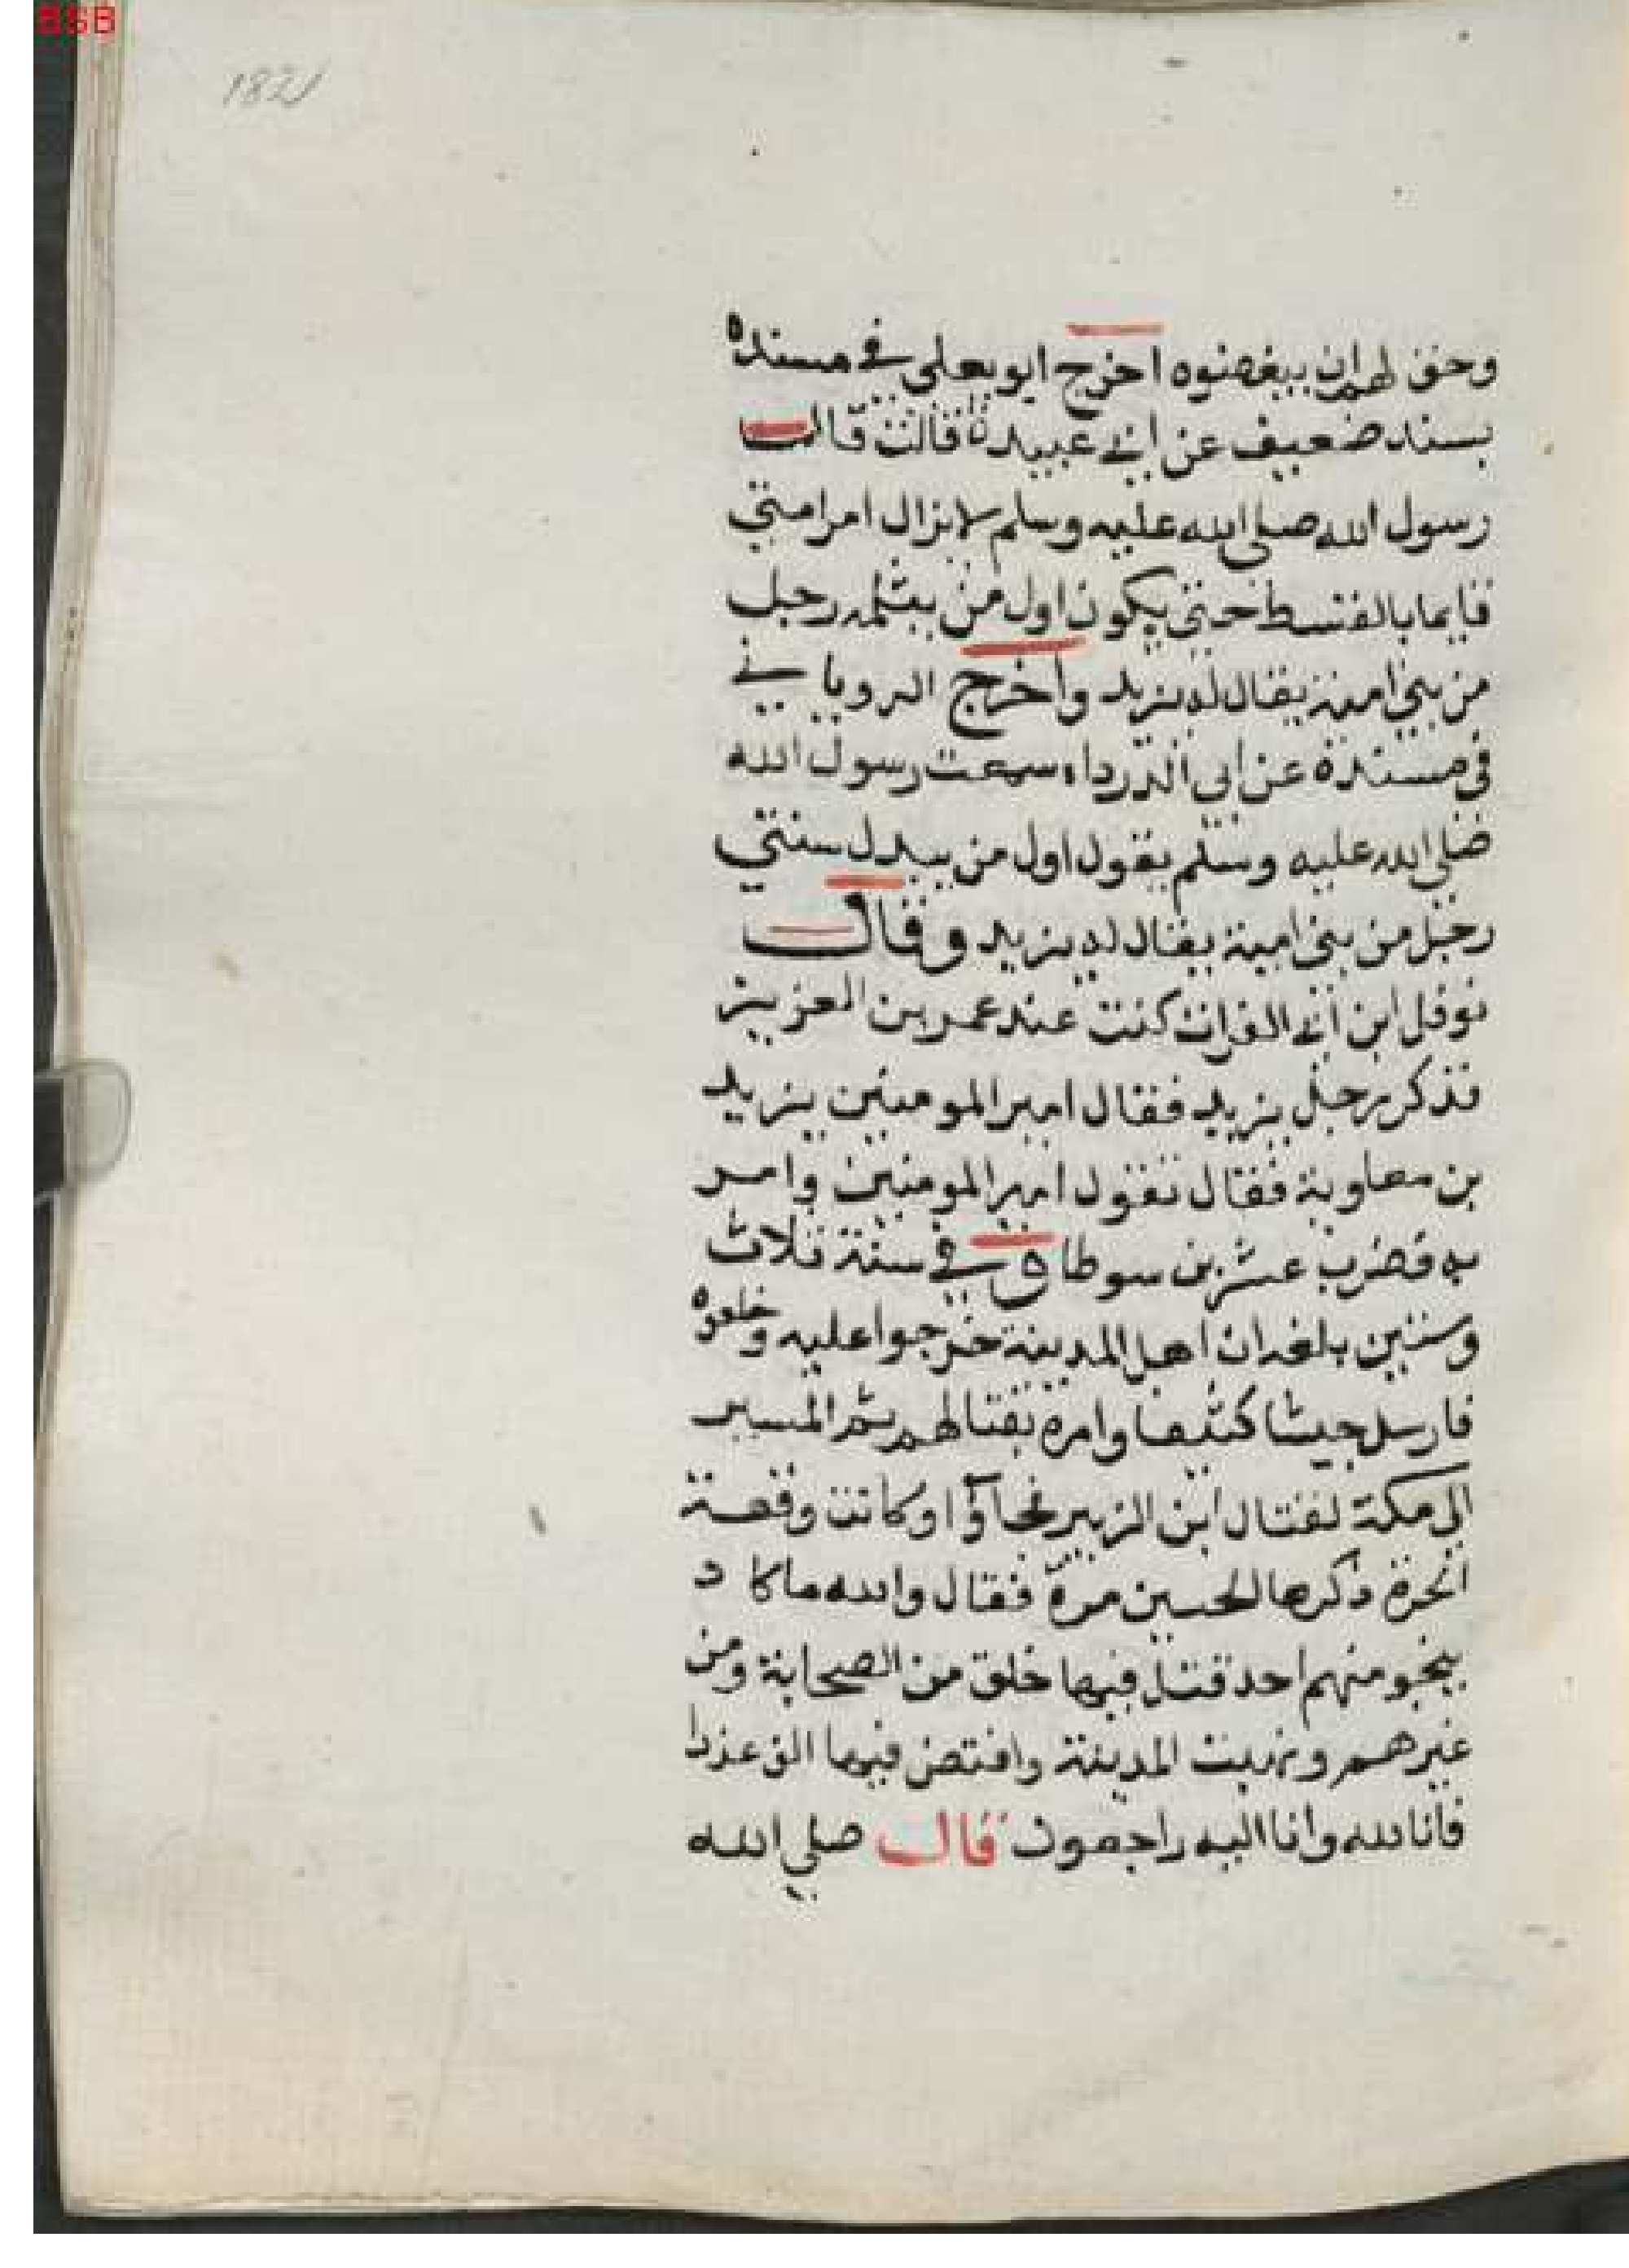 BSB
182
وحق لهم ان يبغضوه اخرج ابو يعلى في مسنده
بسند ضعيف عن ابي عبيدة قالت قال
رسول الله صلى الله عليه وسلم لا يزال امر امتي
قايما بالقسط حتى يكون اول من يثلمه رجل
من بني امية يقال له يزيد واخرج الروياني
في مسنده عن ابي الدرداء سمعت رسول الله
صلى الله عليه وسلم يقول اول من يبدل سنتي
رجل من بني امية يقال له يزيد وقال
نوفل ابن ابي الفرات كنت عند عمر بن العزيز
فذكر رجل يزيد فقال امير المومنين يزيد
بن معاوية فقال تقول امير المومنين وامر
به فضرب عشرين سوطا و في سنة ثلاث
وستين بلغه ان اهل المدينة خرجوا عليه وخلعوه
فارسل جيشا كثيفا وامره بقتالهم ثم المسير
الى مكة لقتال ابن الزبير فجاؤا وكانت وقعة
الحرة ذكرها الحسين مرة فقال والله ما كاد
ينجو منهم احد قتل فيها خلق من الصحابة ومن
غيرهم ونهبت المدينة وافتض فيها الف عذرا
فانا لله وانا اليه راجعون قال صلى الله